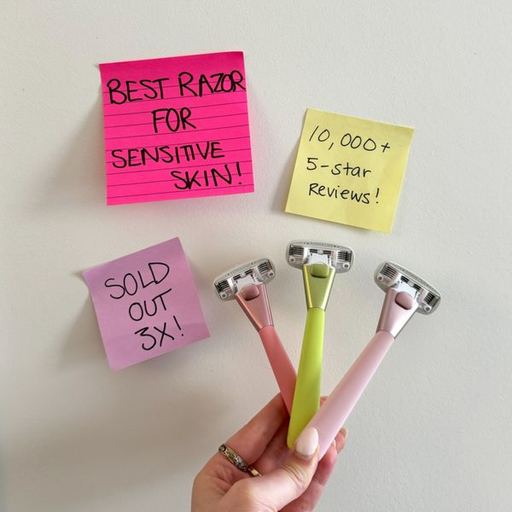 BEST RAZOR
FOR
SENSITIVE
SKIN!
10,000+
5-star
Reviews!
SOLD
OUT
3X!